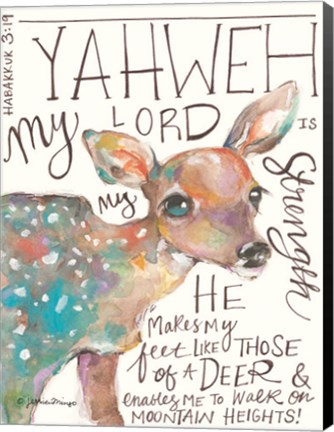 HABAKKUK 3:19
YAHWEH
my LORD IS
my Strength
HE
Makes My
feet LIKE THOSE
of A DEER &
enables ME TO WALK ON
MOUNTAIN HEIGHTS!
Jessica Mingo